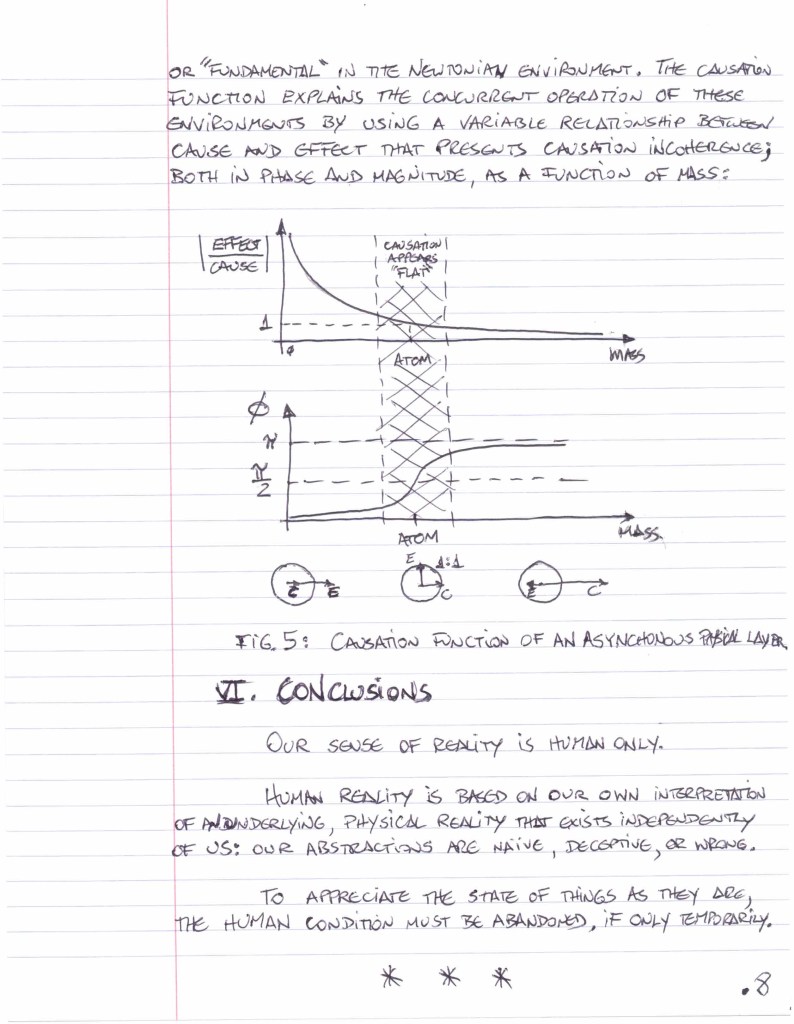 OR "FUNDAMENTAL" IN THE NEWTONIAN ENVIRONMENT. THE CAUSATION
FUNCTION EXPLAINS THE CONCURRENT OPERATION OF THESE
ENVIRONMENTS BY USING A VARIABLE RELATIONSHIP BETWEEN
CAUSE AND EFFECT THAT PRESENTS CAUSATION INCOHERENCE;
BOTH IN PHASE AND MAGNITUDE, AS A FUNCTION OF MASS:
|EFFECT
CAUSE|
CAUSATION
APPEARS
"FLAT"
1
φ
ATOM
MASS
φ
π
π
2
ATOM
MASS
E 1:1
C E
C
E C
FIG. 5: CAUSATION FUNCTION OF AN ASYNCHONOUS PHYSICAL LAYER
VI. CONCLUSIONS
OUR SENSE OF REALITY IS HUMAN ONLY.
HUMAN REALITY IS BASED ON OUR OWN INTERPRETATION
OF AN UNDERLYING, PHYSICAL REALITY THAT EXISTS INDEPENDENTLY
OF US: OUR ABSTRACTIONS ARE NAÏVE, DECEPTIVE, OR WRONG.
TO APPRECIATE THE STATE OF THINGS AS THEY ARE,
THE HUMAN CONDITION MUST BE ABANDONED, IF ONLY TEMPORARILY.
* * *
.8